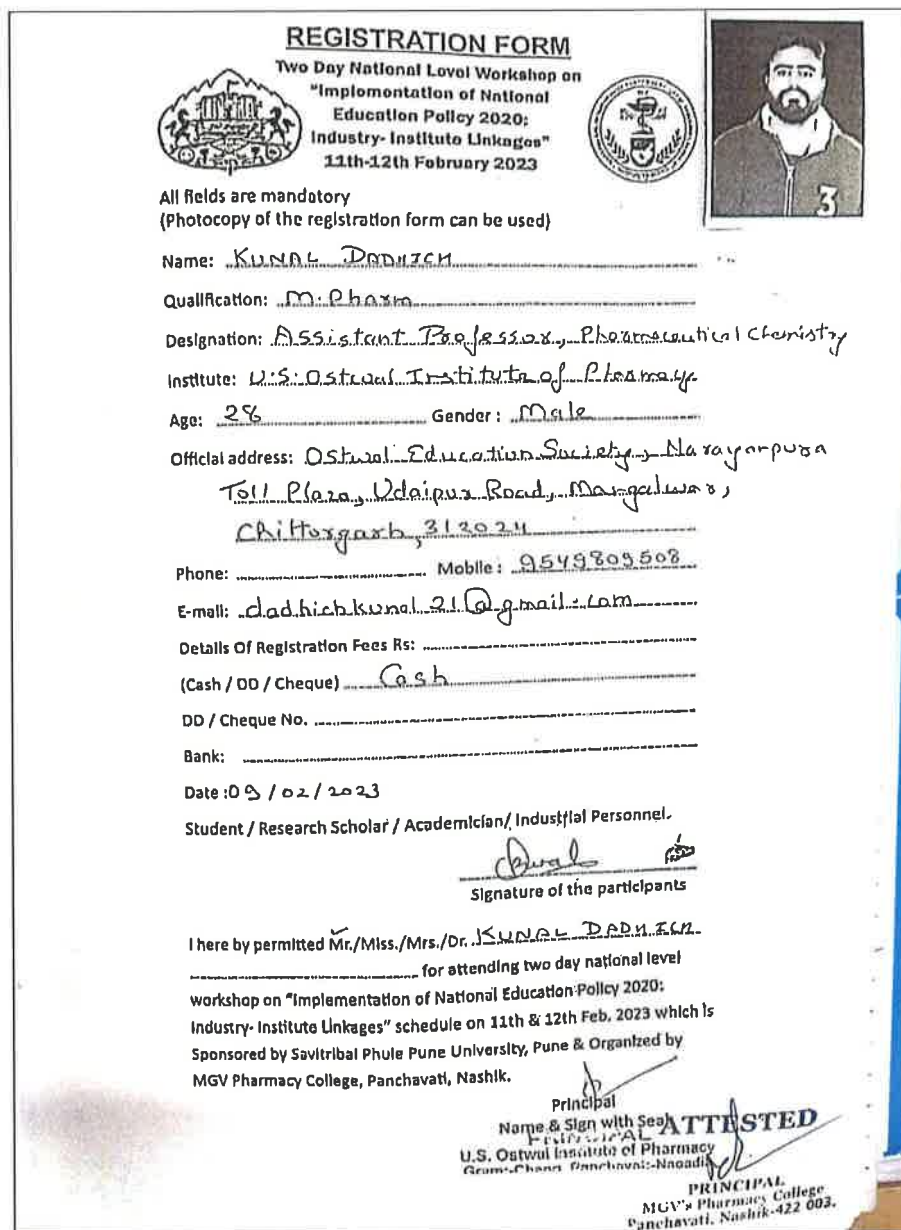 REGISTRATION FORM
Two Day National Level Workshop on
"Implementation of National
Education Policy 2020:
Industry- Institute Linkages"
11th-12th February 2023
3
All fields are mandatory
(Photocopy of the registration form can be used)
Name: KUNAL DADHICH
Qualification: M. Pharm
Designation: Assistant Professor, Pharmaceutical Chemistry
Institute: U.S. Ostwal Institute of Pharmacy
Age: 28 Gender : Male
Official address: Ostwal Education Society, Narayanpura
Toll Plaza, Udaipur Road, Mangalwar,
Chittorgarh, 312024
Phone: Mobile : 9549809508
E-mail: dadhichkunal21@gmail.com
Details Of Registration Fees Rs:
(Cash / DD / Cheque) Cash
DD / Cheque No.
Bank:
Date :09/02/2023
Student / Research Scholar / Academician/ Industrial Personnel.
Signature of the participants
I here by permitted Mr./Miss./Mrs./Dr. KUNAL DADHICH
for attending two day national level
workshop on "Implementation of National Education Policy 2020:
Industry- Institute Linkages" schedule on 11th & 12th Feb. 2023 which is
Sponsored by Savitribai Phule Pune University, Pune & Organized by
MGV Pharmacy College, Panchavati, Nashik.
Principal
Name & Sign with Seal ATTESTED
PRINCIPAL
U.S. Ostwal Institute of Pharmacy
PRINCIPAL
MGV's Pharmacy College
Panchavati, Nashik-422 003.